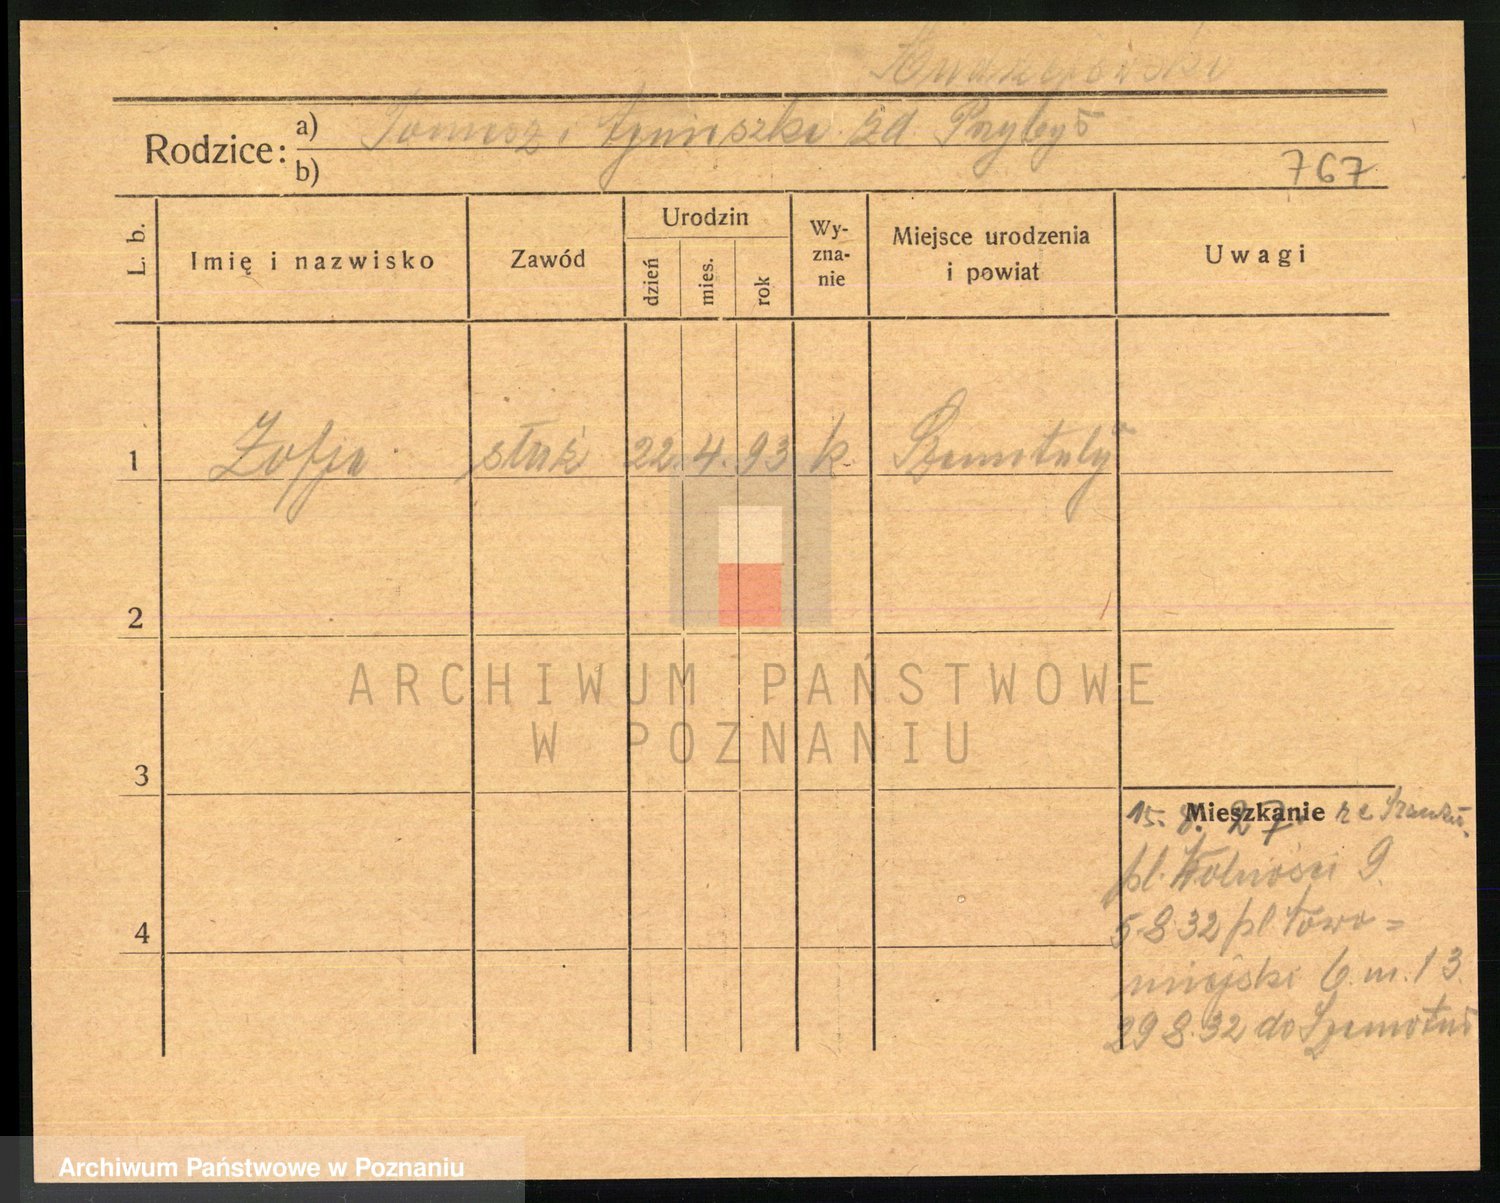 Rodzice: a) Tomasz i Agnieszka zd. Przybył
b)
767
L. b.
Imię i nazwisko
Zawód
Urodzin
dzień
mies.
rok
Wy-
zna-
nie
Miejsce urodzenia
i powiat
Uwagi
1 Zofja służ 22. 4. 93 k.
2
3
4
ARCHIWUM PAŃSTWOWE
W POZNANIU
Mieszkanie
15. 27
pl. Wolności 9.
5 8 32 pl
miejski 6 m. 13.
29 8. 32 do
Archiwum Państwowe w Poznaniu